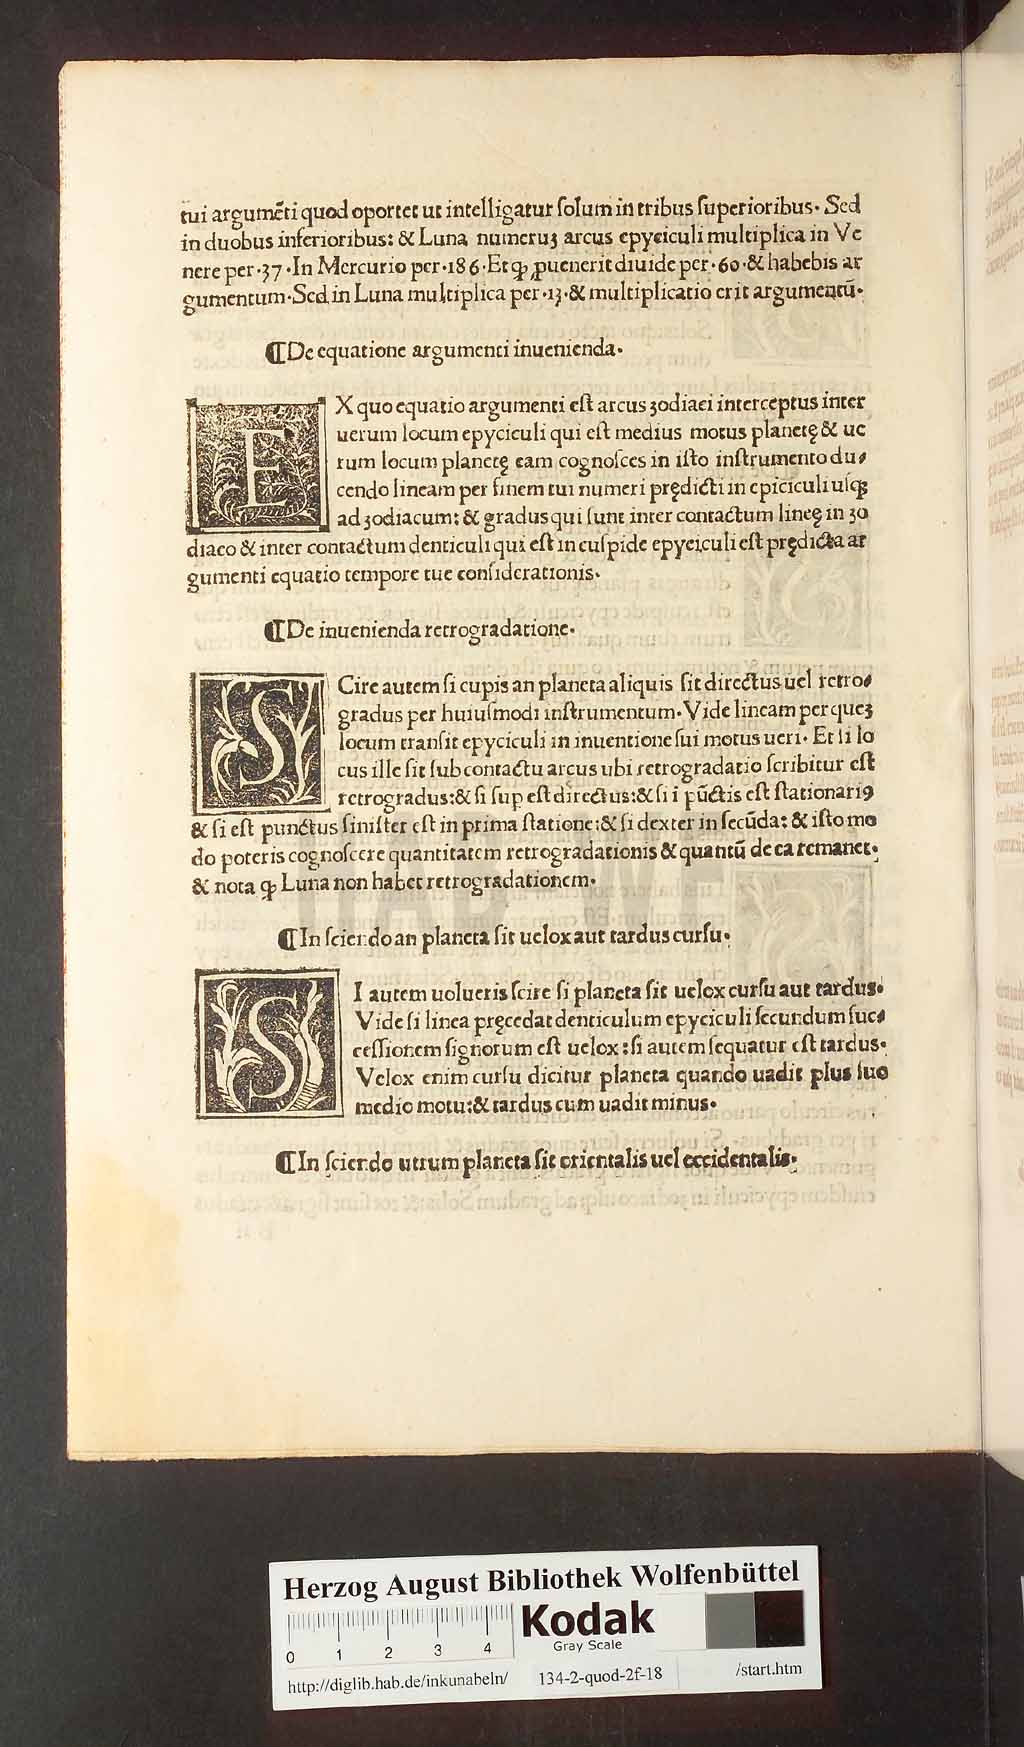 tui argumēti quod oportet ut intelligatur ſolum in tribus ſuperioribus. Sed
in duobus inferioribus: & Luna numeruꝫ arcus epyciculi multiplica in Ve
nere per .37. In Mercurio per .186. Et ꝙ ꝓuenerit diuide per .60. & habebis ar
gumentum. Sed in Luna multiplica per .13. & multiplicatio erit argumentū.
¶De equatione argumenti inuenienda.
EX quo equatio argumenti eſt arcus zodiaci interceptus inter
uerum locum epyciculi qui eſt medius motus planetę & ue
rum locum planetę eam cognoſces in iſto inſtrumento du⸗
cendo lineam per finem tui numeri prędicti in epiciculi uſqꝫ
ad zodiacum: & gradus qui ſunt inter contactum lineę in zo
diaco & inter contactum denticuli qui eſt in cuſpide epyciculi eſt prędicta ar
gumenti equatio tempore tue conſiderationis.
¶De inuenienda retrogradatione.
SCire autem ſi cupis an planeta aliquis ſit directus uel retro⸗
gradus per huiuſmodi inſtrumentum. Vide lineam per queꝫ
locum tranſit epyciculi in inuentione ſui motus ueri. Et ſi lo
cus ille ſit ſub contactu arcus ubi retrogradatio ſcribitur eſt
retrogradus: & ſi ſup eſt directus: & ſi i pūctis eſt ſtationariꝯ
& ſi eſt punctus ſiniſter eſt in prima ſtatione: & ſi dexter in ſecūda: & iſto mo
do poteris cognoſcere quantitatem retrogradationis & quantū de ea remanet.
& nota ꝙ Luna non habet retrogradationem.
¶In ſciendo an planeta ſit uelox aut tardus curſu.
SI autem uolueris ſcire ſi planeta ſit uelox curſu aut tardus.
Vide ſi linea pręcedat denticulum epyciculi ſecundum ſuc⸗
ceſſionem ſignorum eſt uelox: ſi autem ſequatur eſt tardus.
Velox enim curſu dicitur planeta quando uadit plus ſuo
medio motu: & tardus cum uadit minus.
¶In ſciendo utrum planeta ſit orientalis uel occidentalis.
Herzog August Bibliothek Wolfenbüttel
Kodak
Gray Scale
0 1 2 3 4
http://diglib.hab.de/inkunabeln/ 134-2-quod-2f-18 /start.htm